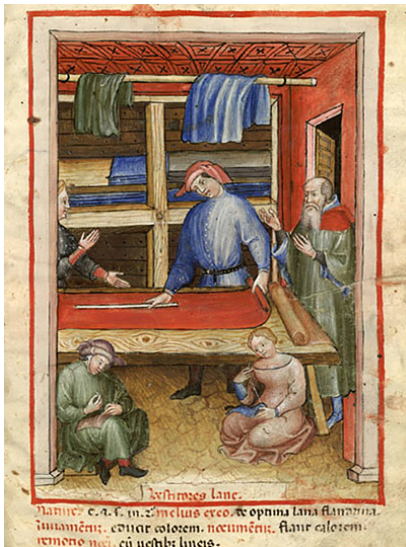 Vestitores lane.
Nature. c. 7. s. in. 2. melius ex eo. de optima lana flandrina.
iuuamentuz. educit colorem. nocumentuz. calorem.
remotio noci. cu vestibz lineis.